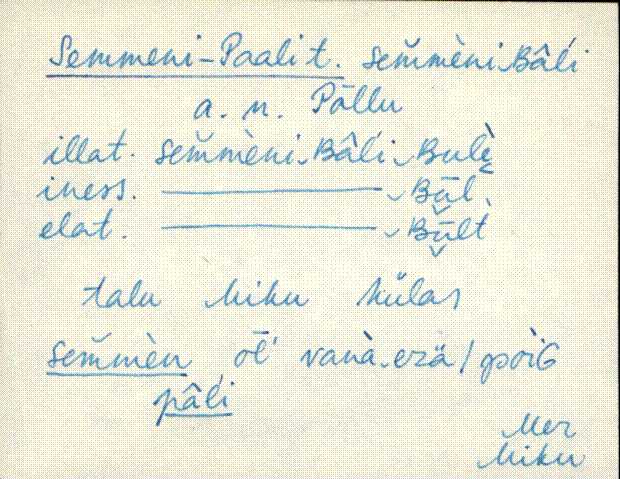 Semmeni-Paalit. sem̆mèni‿Bâĺi
a. n. Põllu
illat. sem̆mèni‿Bâĺi‿Bulè̬
iness. ———— ‿Bū̬l.
elat. ———— ‿Bū̬lt
talu Mihu külas
sem̆mèn, oĺ vanà‿erä / poiG
pâĺi
Mer
Mihu